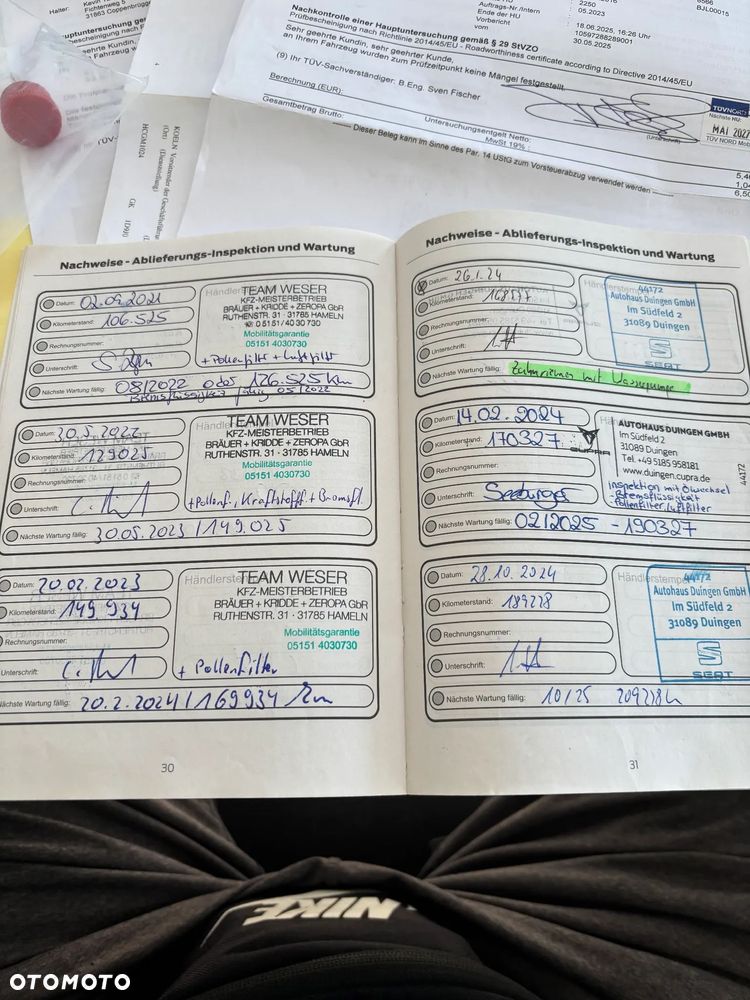 Halter: Kevin
Fichtenweg 5
31863 Coppenbrügge
Auftrags-Nr./Intern
Ende der HU
Vorbericht
vom
2250
05.2023
18.06.2025, 16:26 Uhr
10597288289001
30.05.2025
6566
BJL00015
Nachkontrolle einer Hauptuntersuchung gemäß § 29 StVZO
Prüfbescheinigung nach Richtlinie 2014/45/EU - Roadworthiness certificate according to Directive 2014/45/EU
Sehr geehrte Kundin, sehr geehrter Kunde,
an Ihrem Fahrzeug wurden zum Prüfzeitpunkt keine Mängel festgestellt.
(9) Ihr TÜV-Sachverständiger: B.Eng. Sven Fischer
Berechnung (EUR):
Untersuchungsentgelt Netto:
MwSt 19% :
Gesamtbetrag Brutto:
(Unterschrift)
Dieser Beleg kann im Sinne des Par. 14 UStG zum Vorsteuerabzug verwendet werden
TÜV NORD
Nächste HU:
MAI 2027
TÜV NORD Mobi
HCGM1024
Nachweise - Ablieferungs-Inspektion und Wartung
Datum: 02.09.2021
Kilometerstand: 106.525
Rechnungsnummer:
Unterschrift:
Händlerstempel
TEAM WESER
KFZ-MEISTERBETRIEB
BRÄUER + KRIDDE + ZEROPA GbR
RUTHENSTR. 31 · 31785 HAMELN
☎ 0 51 51 / 40 30 730
Mobilitätsgarantie
05151 4030730
+ Pollenfilt + Luftfilt
Nächste Wartung fällig: 08/2022 oder 126.525 km
Bremsflüssigkeit fällig 05/2022
Datum: 30.5.2022
Kilometerstand: 129025
Rechnungsnummer:
Unterschrift:
TEAM WESER
KFZ-MEISTERBETRIEB
BRÄUER + KRIDDE + ZEROPA GbR
RUTHENSTR. 31 · 31785 HAMELN
Mobilitätsgarantie
05151 4030730
+Pollenf., Kraftstofff + Bremsfl.
Nächste Wartung fällig: 30.05.2023 / 149.025
Datum: 20.02.2023
Kilometerstand: 149 934
Rechnungsnummer:
Unterschrift:
TEAM WESER
KFZ-MEISTERBETRIEB
BRÄUER + KRIDDE + ZEROPA GbR
RUTHENSTR. 31 · 31785 HAMELN
Mobilitätsgarantie
05151 4030730
+ Pollenfilter
Nächste Wartung fällig: 20.2.2024 / 169934 km
30
Nachweise - Ablieferungs-Inspektion und Wartung
Datum: 26.1.24
Kilometerstand: 168577
Rechnungsnummer:
Unterschrift:
44172
Autohaus Duingen GmbH
Im Südfeld 2
31089 Duingen
SEAT
Nächste Wartung fällig: Zahnriemen mit Wasserpumpe
Datum: 14.02.2024
Kilometerstand: 170327
Rechnungsnummer:
Unterschrift: Seeburger
CUPRA
AUTOHAUS DUINGEN GMBH
Im Südfeld 2
31089 Duingen
Tel. +49 5185 958181
www.duingen.cupra.de
44172
inspektion mit Ölwechsel
- Bremsflüssigkeit
- Pollenfilter/Luftfilter
Nächste Wartung fällig: 02/2025 - 190327
Datum: 28.10.2024
Kilometerstand: 189278
Rechnungsnummer:
Unterschrift:
Händlerstempel
44172
Autohaus Duingen GmbH
Im Südfeld 2
31089 Duingen
SEAT
Nächste Wartung fällig: 10/25 209278 km
31
NIKE
OTOMOTO